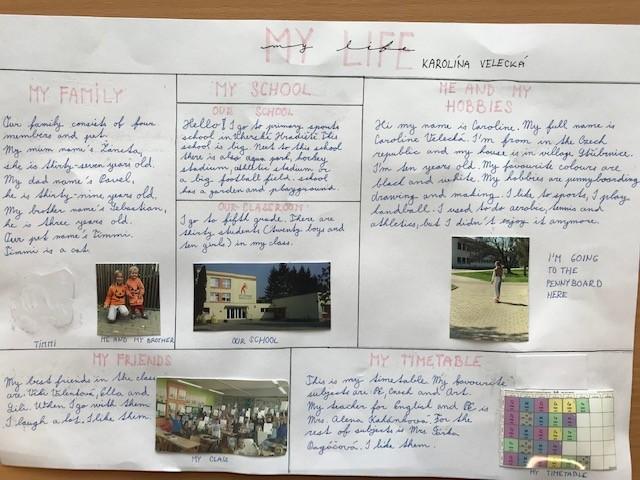 MY LIFE
my life
KAROLÍNA VELECKÁ
MY FAMILY
Our family consists of four
members and pet.
My mum name's Žaneta,
she is thirty-seven years old.
My dad name's Pavel,
he is thirty-nine years old.
My brother name's Sebastian,
he is three years old.
Our pet name's Timmi.
Timmi is a cat.
TIMMI
ME AND MY BROTHER
MY SCHOOL
OUR SCHOOL
Hello! I go to primary sports
school in Uherské Hradiště. This
school is big. Next to this school
there is also aqua park, hockey
stadium, athletic stadium or
a big football field. School
has a garden and playground.
OUR CLASSROOM
I go to fifth grade. There are
thirty students (twenty boys and
ten girls) in my class.
OUR SCHOOL
ME AND MY
HOBBIES
Hi my name is Caroline. My full name is
Caroline Velecká. I'm from in the Czech
republic and my house is in village
I'm ten years old. My favourite colours are
black and white. My hobbies are pennyboarding,
drawing and making. I like to sports, I play
handball. I used to to aerobic, tennis and
athletics, but I didn't enjoy it anymore.
I'M GOING
TO THE
PENNYBOARD
HERE
MY FRIENDS
My best friends in the class
are Viki Ella and
Lili. When I go with them
I laugh a lot. I like them.
MY CLASS
MY TIMETABLE
This is my timetable. My favourite
subjects are PE, Czech and Art.
My teacher for English and PE is
Mrs. Alena For the
rest of subjects is Mrs.
I like them.
MY TIMETABLE